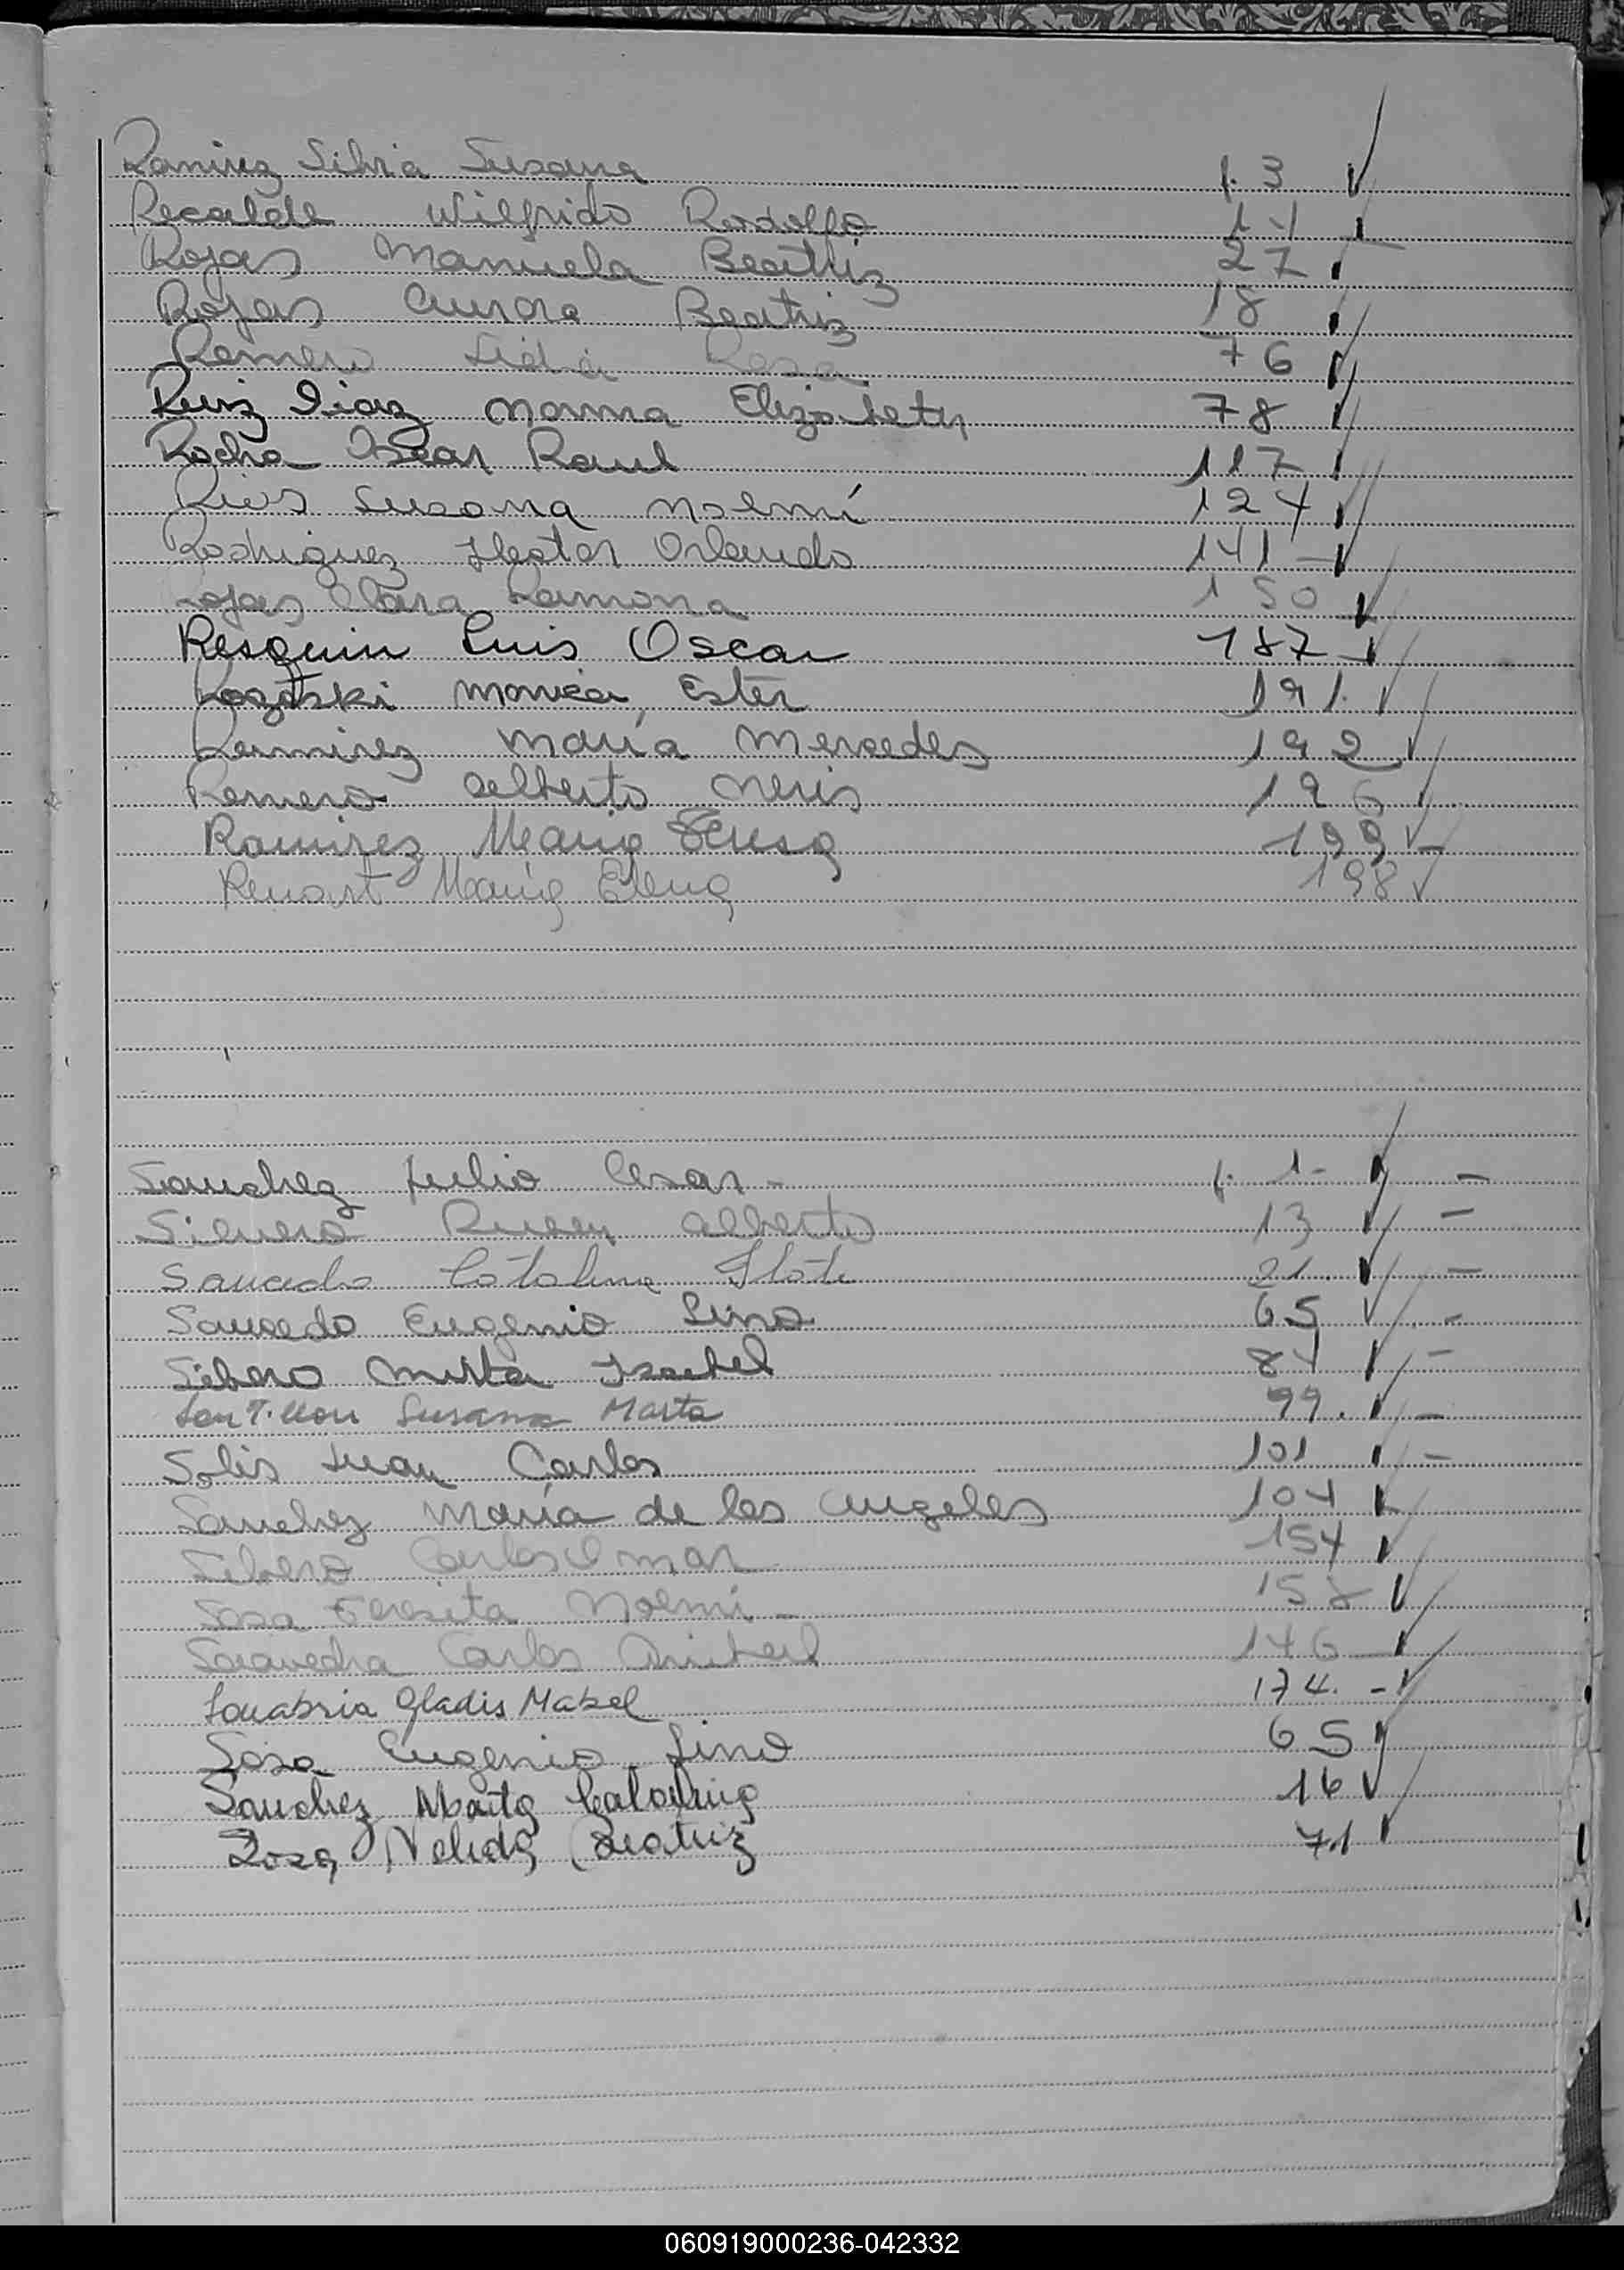 Ramirez Silvia Susana f. 3 ✓
Recalde Wilfrido Rodolfo 14 ✓
Rojas Manuela Beatriz 27 ✓
Rojas Aurora Beatriz 18 ✓
Romero Lidia Rosa 76 ✓
Ruiz Diaz Norma Elizabeth 78 ✓
Rocha Oscar Raul 117 ✓
Rios Susana Noemí 124 ✓
Rodriguez Hector Orlando 141 - ✓
Rojas Clara Ramona 150 ✓
Resquin Luis Oscar 187 - ✓
Monica Ester 191. ✓
Ramirez María Mercedes 192 ✓
Romero Alberto Neris 196 ✓
Ramirez Maria Teresa 199 ✓ -
Renart María Elena 198 ✓
Sanchez Julio Cesar - f. 1 - ✓ -
Silvero Ruben Alberto 13 ✓ -
Saucedo Catalina 21. ✓ -
Saucedo Eugenio Lino 65 ✓ -
Silvero Mirta Isabel 84 ✓ -
Susana Marta 99. ✓ -
Solis Juan Carlos 101 ✓ -
Sanchez María de los Angeles 104 ✓
Silvero Carlos Omar 154 ✓
Sosa Teresita Noemi - 158 ✓
Saravedra Carlos Anibal 146 - ✓
Sanabria Gladis Mabel 174. - ✓
Sosa Eugenio Lino 65 ✓
Sanchez Marta Catalina 16 ✓
Sosa Nelida Beatriz 71 ✓
060919000236-042332